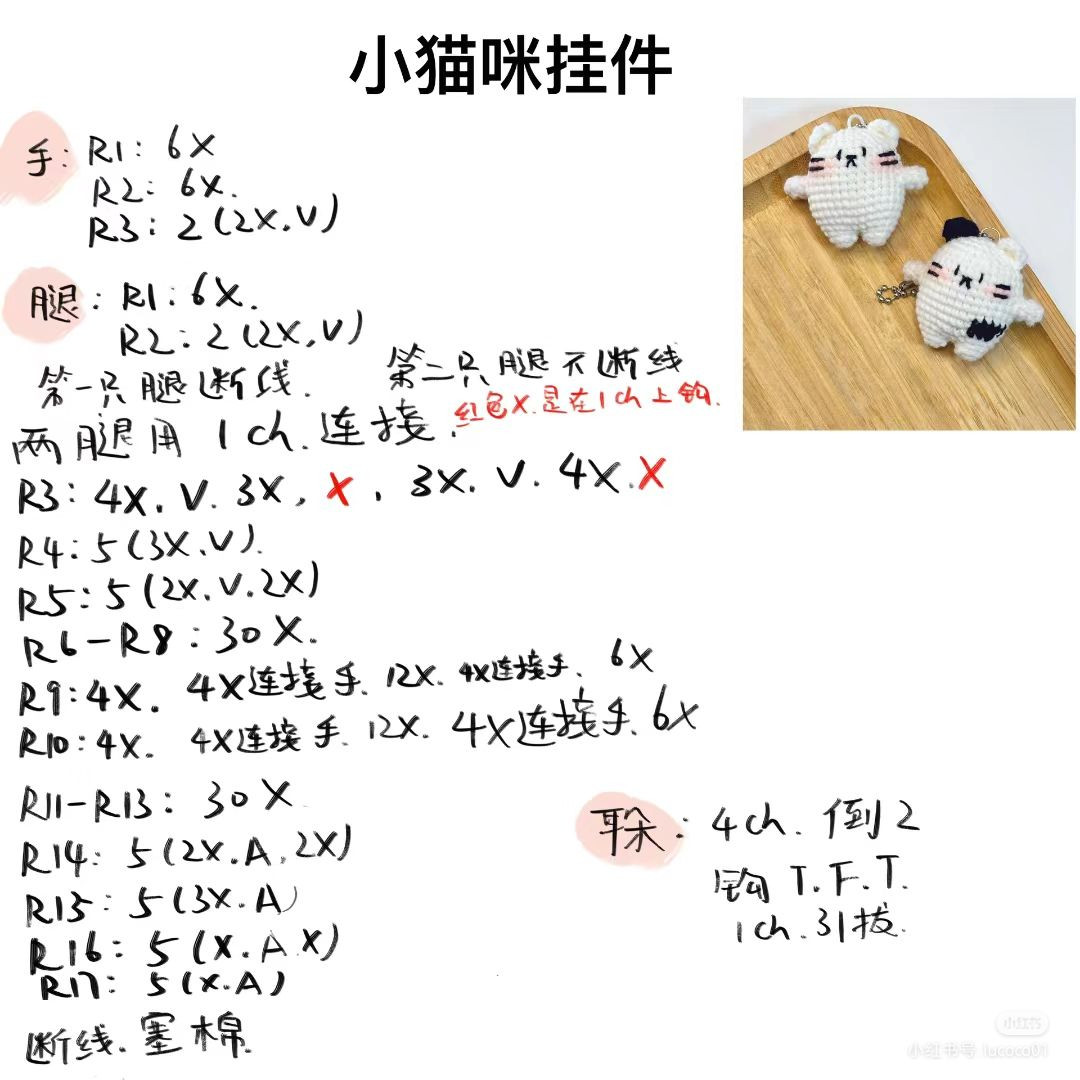 小猫咪挂件
手: R1: 6X
R2: 6X.
R3: 2(2X.V)
腿: R1: 6X.
R2: 2(2X,V)
第一只腿断线. 第二只腿不断线
两腿用 1ch.连接. 红色X.是在1ch上钩.
R3: 4X. V. 3X, X, 3X. V. 4X. X
R4: 5(3X.V).
R5: 5(2X.V.2X)
R6-R8: 30X.
R9: 4X. 4X连接手. 12X. 4X连接手. 6X
R10: 4X. 4X连接手. 12X. 4X连接手. 6X
R11-R13: 30X
R14: 5(2X.A.2X)
R15: 5(3X.A)
R16: 5(X.A X)
R17: 5(X.A)
断线.塞棉.
耳朵: 4ch. 倒2
钩 T.F.T.
1ch.引拔.
小红书
小红书号 lucoco01